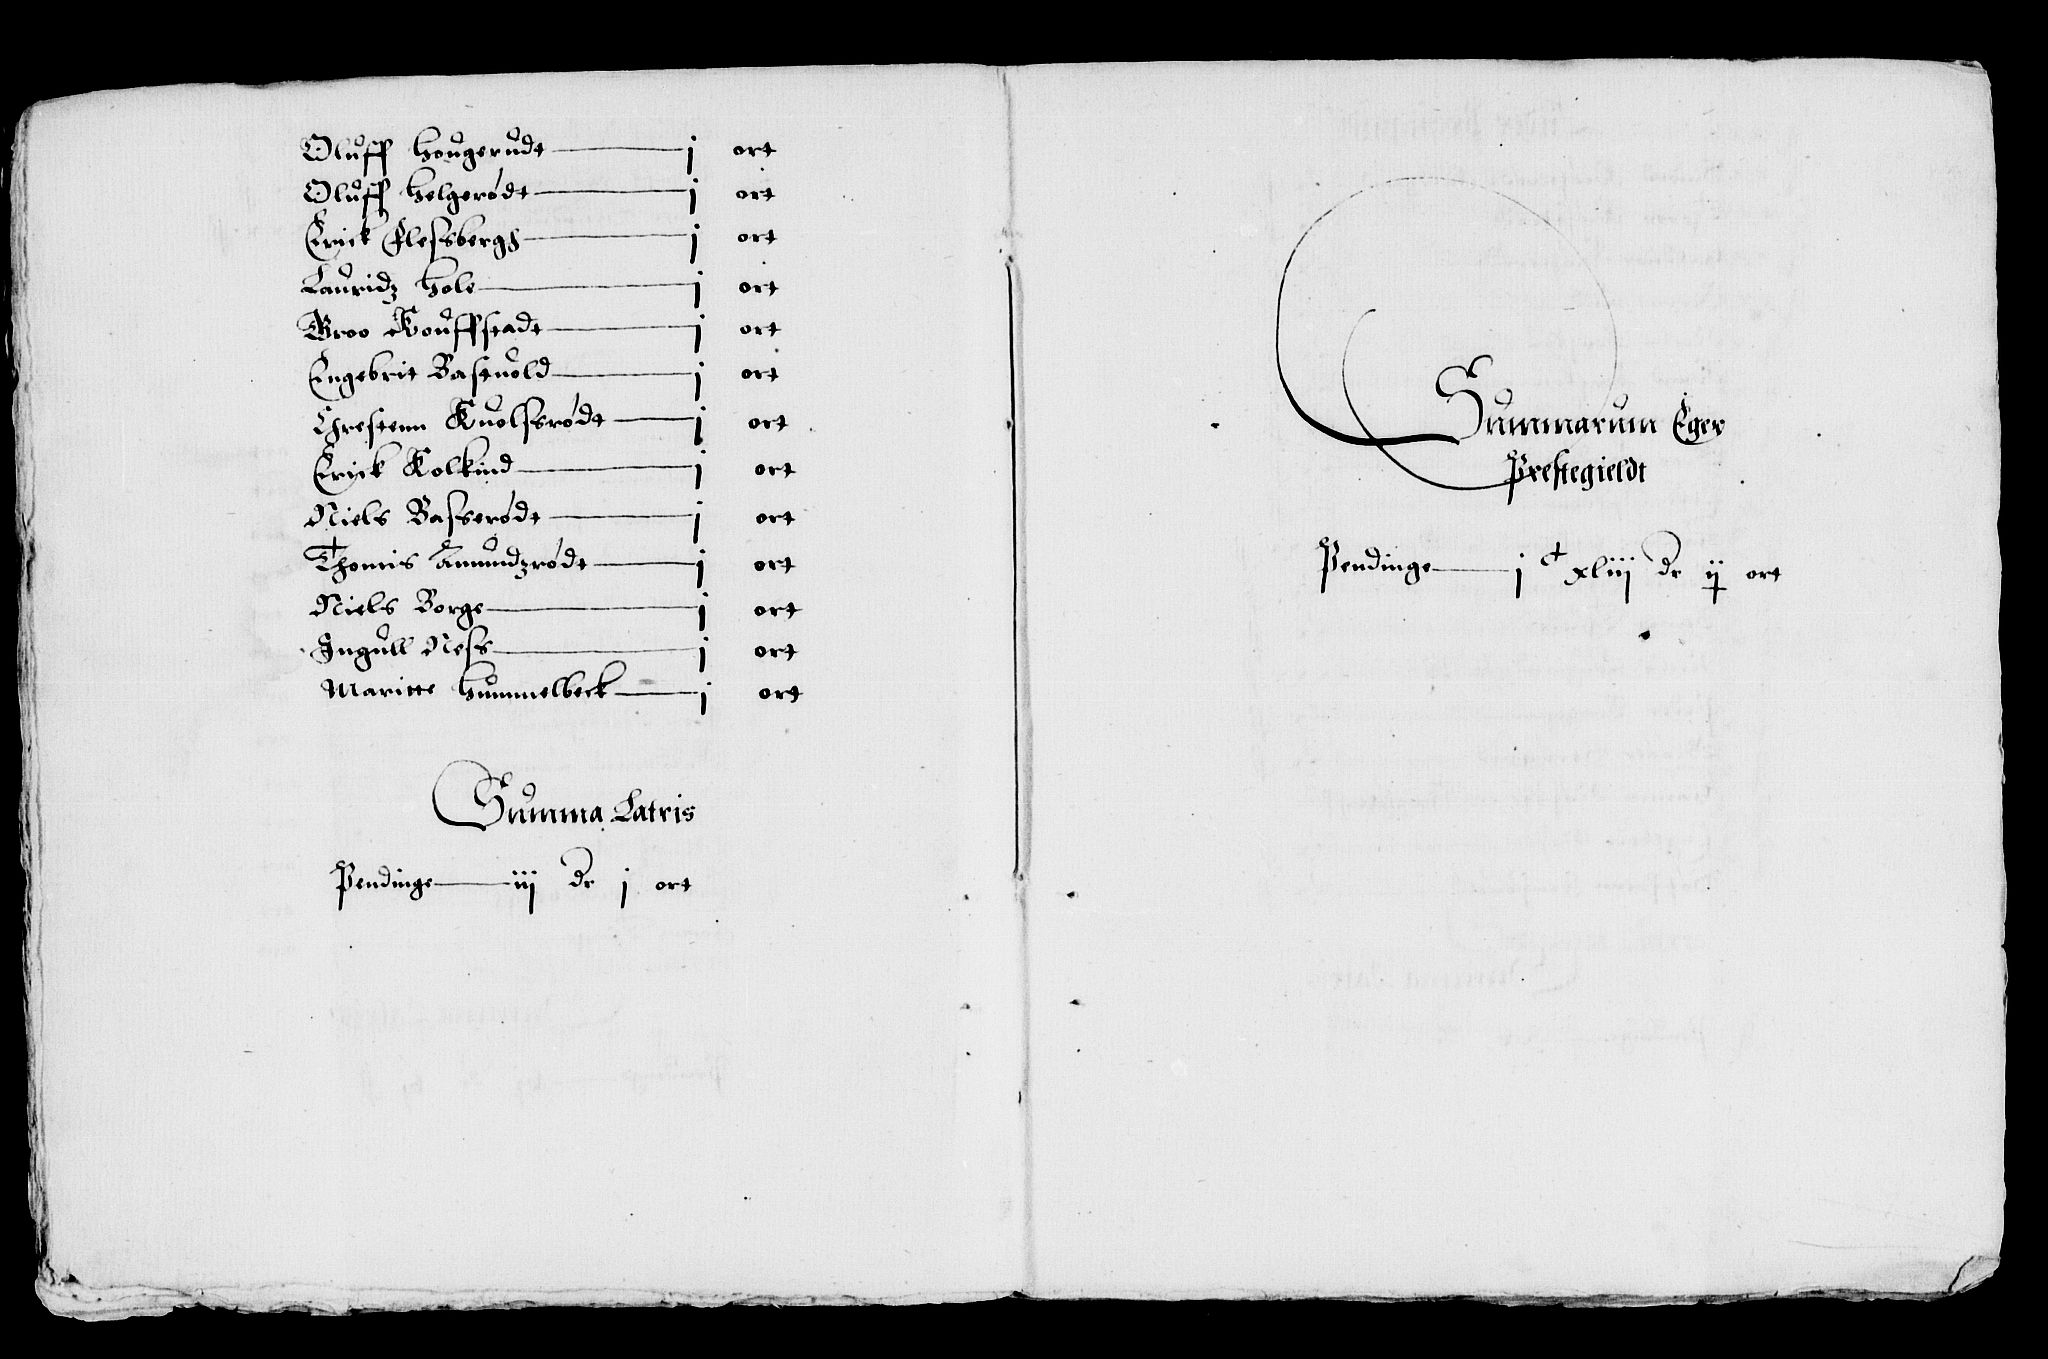 Oluff Hougerudt j ort
Oluff Helgerødt j ort
Erick Flessbergh j ort
Lauridz Hole j ort
Broo Kouffstadt j ort
Engebrit Bastuold j ort
Chrestenn Kuolssrødt j ort
Erick Kolkind j ort
Niels Basserødt j ort
Thomis Amundzrødt j ort
Niels Borge j ort
Ingull Ness j ort
Maritte Hummelbeck j ort
Summa Latris
Pendinge iij dr j ort
Summarum Eger
Prestegieldt
Pendinge j c xliij dr ij ort